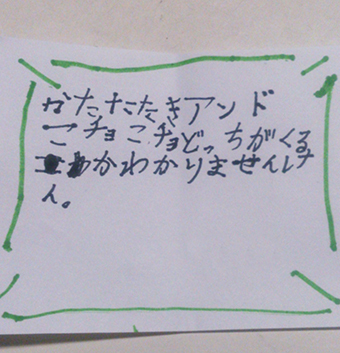 かたたたきアンド
こチョこチョどっちがくる
かわかりませんけ
ん。